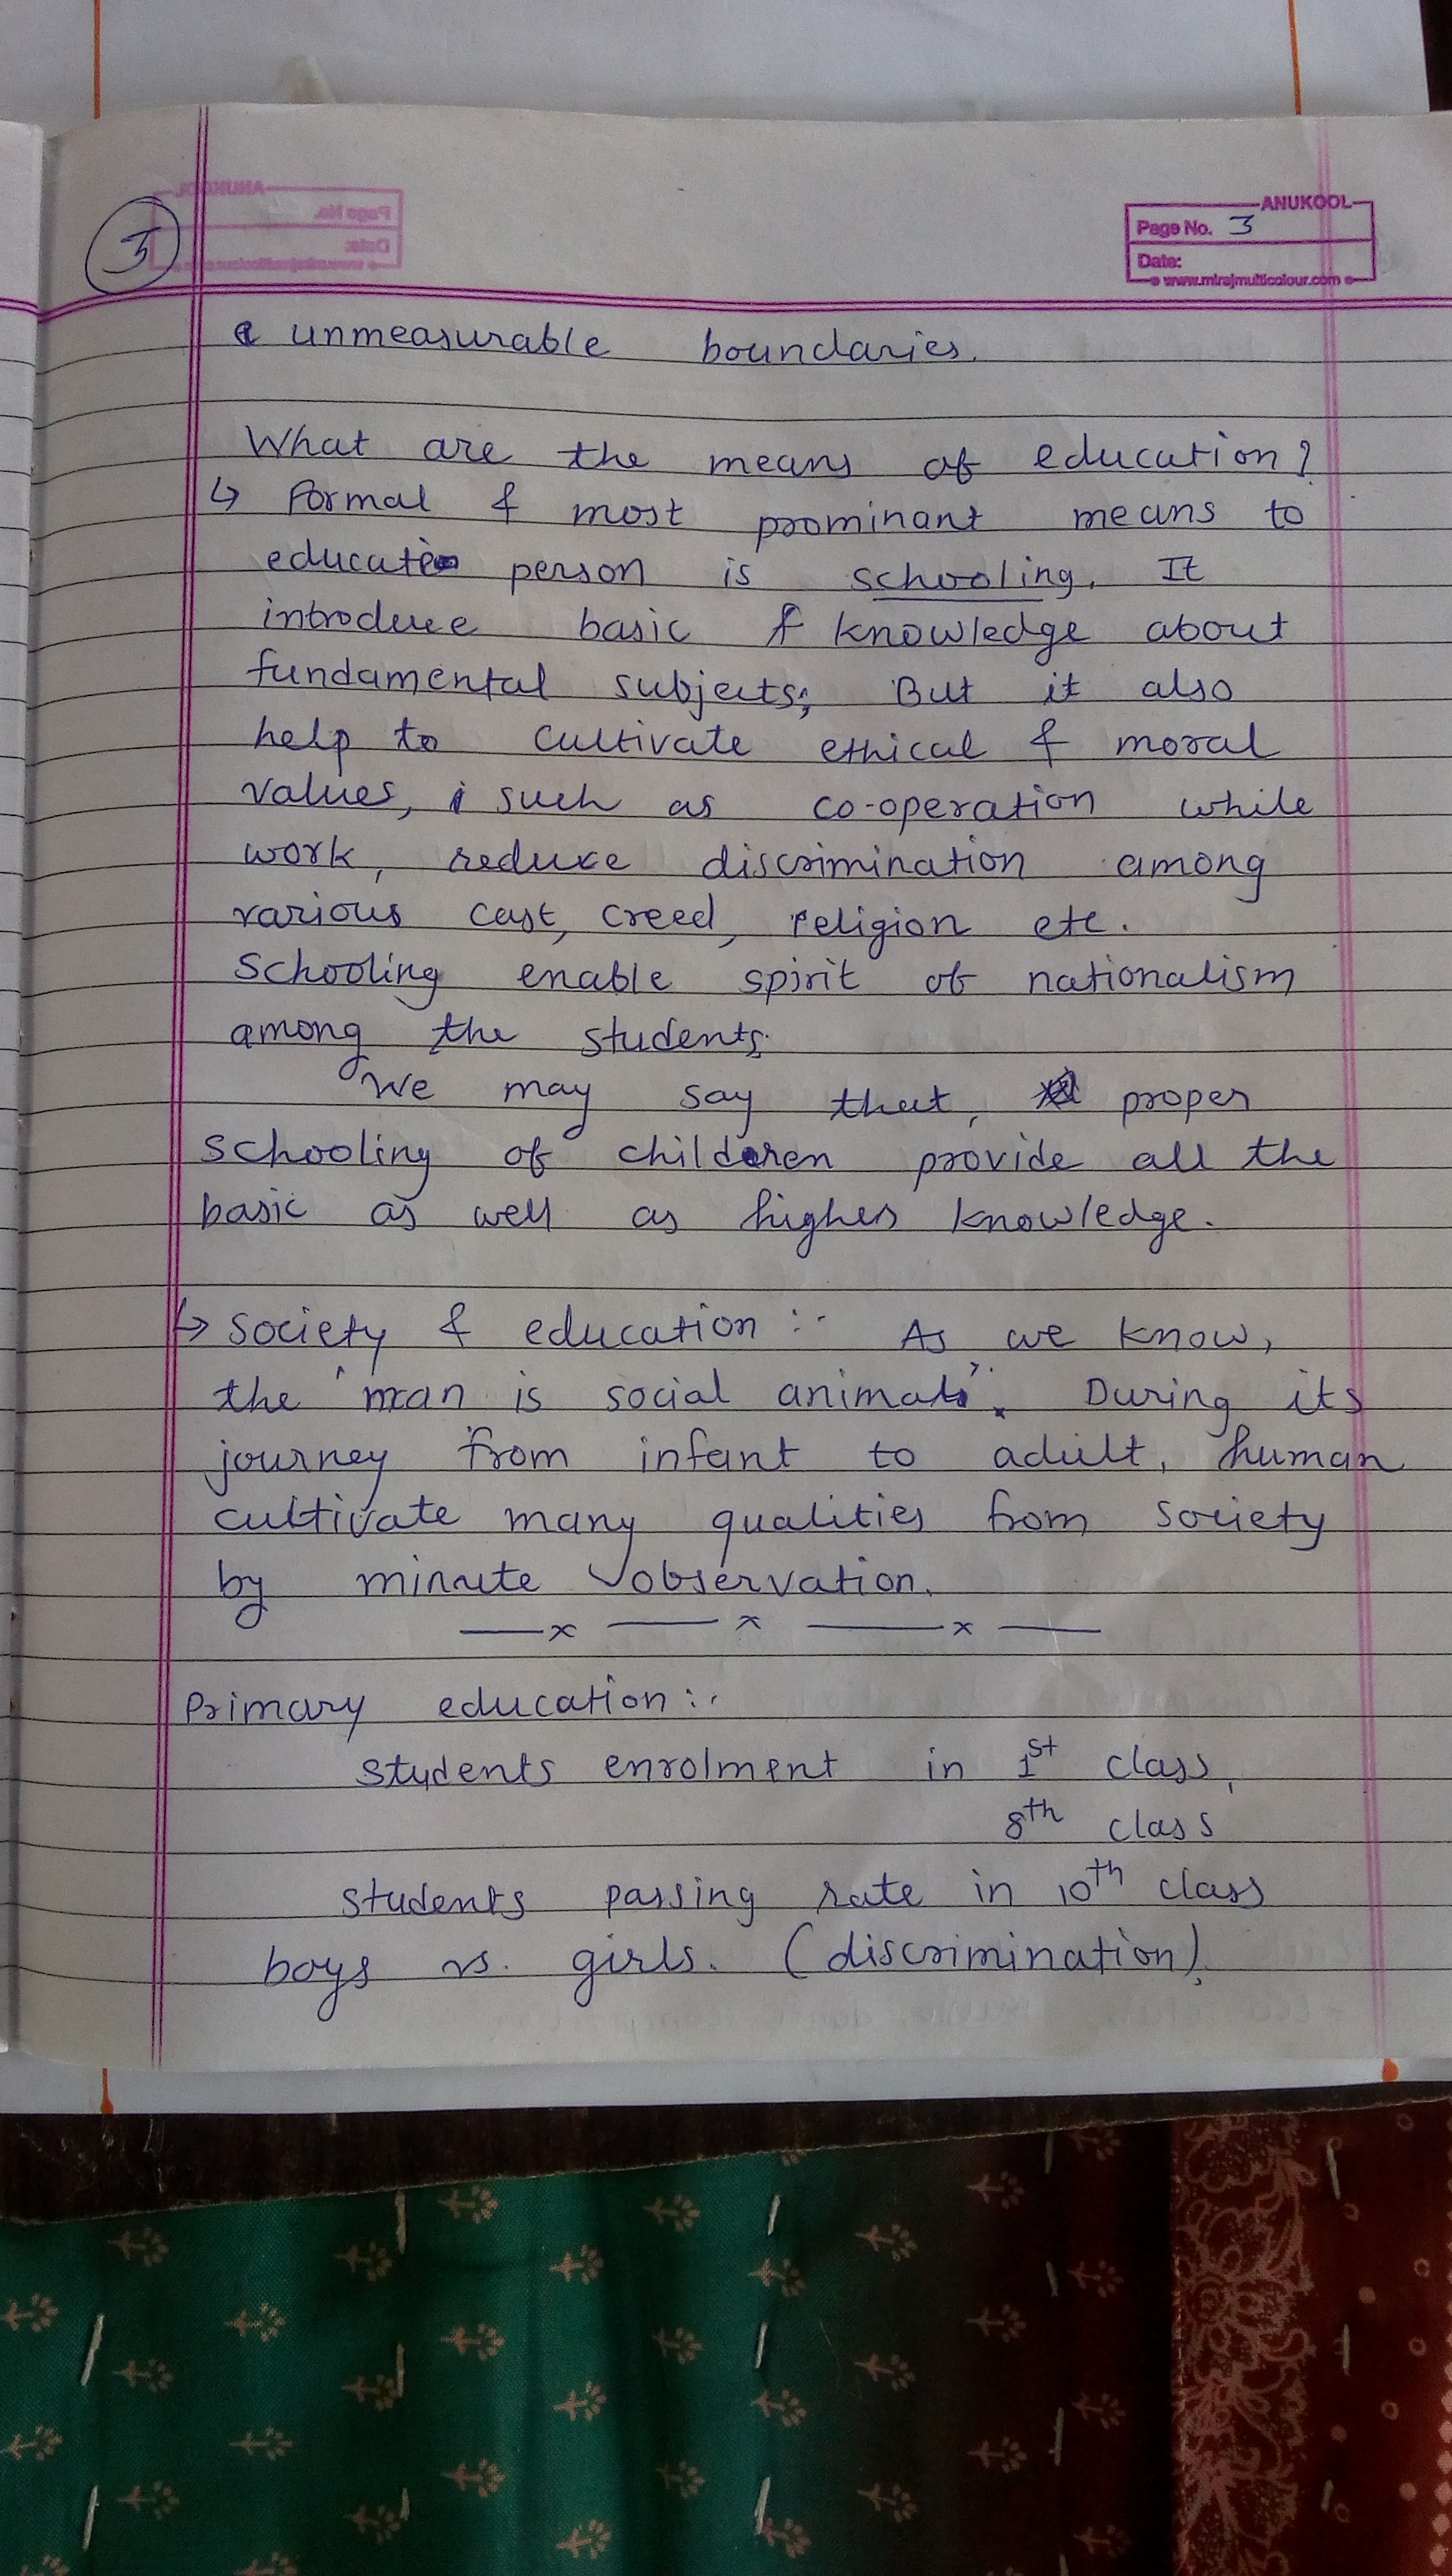 3
ANUKOOL
Page No. 3
Date:
www.mirajmulticolour.com
& unmeasurable boundaries.
What are the means of education?
↳ Formal & most prominant means to
educate person is schooling. It
introduce basic knowledge about
fundamental subjects; But it also
help to cultivate ethical & moral
values, such as co-operation while
work, reduce discrimination among
various cast, creed, religion etc.
Schooling enable spirit of nationalism
among the students.
We may say that, proper
schooling of children provide all the
basic as well as higher knowledge.
↳ Society & education :- As we know,
the 'man is social animal'. During its
journey from infant to adult, human
cultivate many qualities from society
by minute observation.
—x —x —x —
Primary education :-
students enrolment in 1st class,
8th class
students passing rate in 10th class
boys vs. girls. (discrimination).